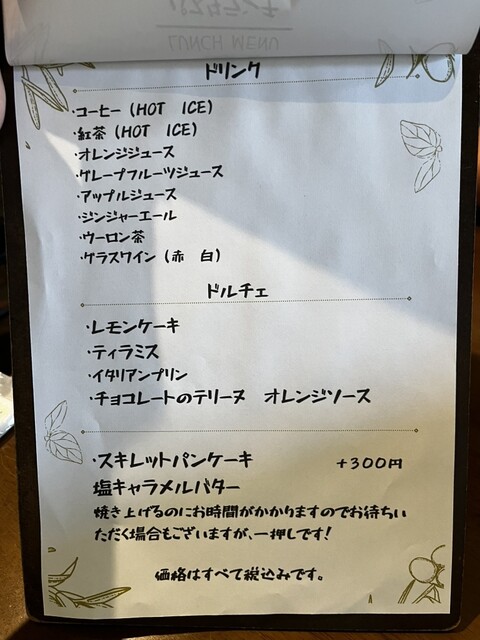 パスタランチ
LUNCH MENU
ドリンク
・コーヒー（HOT ICE）
・紅茶（HOT ICE）
・オレンジジュース
・グレープフルーツジュース
・アップルジュース
・ジンジャーエール
・ウーロン茶
・グラスワイン（赤 白）
ドルチェ
・レモンケーキ
・ティラミス
・イタリアンプリン
・チョコレートのテリーヌ オレンジソース
・スキレットパンケーキ +300円
塩キャラメルバター
焼き上げるのにお時間がかかりますのでお待ちい
ただく場合もございますが、一押しです!
価格はすべて税込みです。